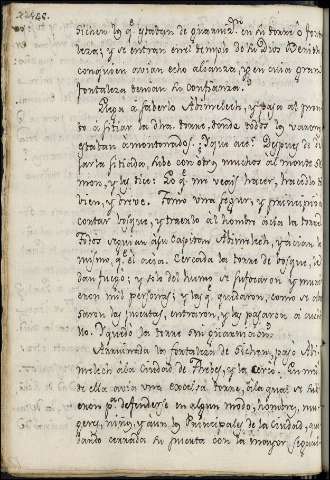 Sichen lo q.e estaban de guarniz.on en su torre o forta
leza; y se entran en el templo de su Dios Berith
con quien avian echo alianza, y en cuia gran
fortaleza tenian su confianza.
Llega à saberlo Abimelech, y pasa al pun
to à sitiar la dha. torre, donde todos los varon.s
estaban amontonados. ¿Y que ace? Despues de de
jarla sitiada, sube con otros muchos al monte Sel
mon, y les dice: Lo q.e me veais hacer, hacedlo tam
bien, y breve. Tomò una segur, y principiò à
cortar bosque, y traerlo al hombro acia la torre
Todos seguian a su Capitan Abimelech, y acian lo
mismo, q.e èl acia. Cercada la torre de bosque, le
dan fuego; y solo del humo se sufocaron y mu
eron mil personas; y las q.e quedaron, como se a
saron las puertas, entraron, y las pasaron à cuchi
llo. Y quedò la torre sin guarnicion.
Arruinada la fortaleza de Sichem, pasò Abi
melech à la Ciudad de Thebes, y la cercò. En mi
de ella avia una excelsa torre, à la qual se su
eron p.a defenderse en algun modo, hombres, mu
geres, niños, y aun los Principales de la Ciudad, que
dando cerrada su puerta con la mayor seguri